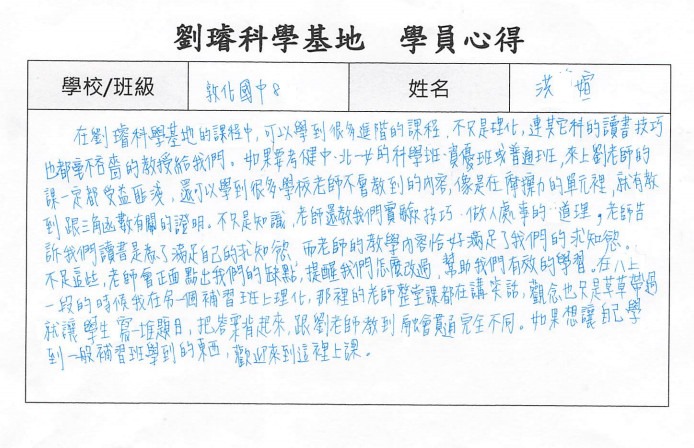 劉璿科學基地 學員心得
學校/班級 敦化國中 8 姓名 洪 萱
在劉璿科學基地的課程中,可以學到很多進階的課程,不只是理化,連其它科的讀書技巧
也都毫不吝嗇的教授給我們。如果要考健中、北一女的科學班、資優班或普通班,來上劉老師的
課一定都受益匪淺,還可以學到很多學校老師不會教到的內容,像是在摩擦力的單元裡,就有教
到跟三角函數有關的證明。不只是知識,老師還教我們實驗技巧、做人處事的道理。老師告
訴我們讀書是為了滿足自己的求知慾,而老師的教學內容恰好滿足了我們的求知慾。
不只這些,老師會正面點出我們的缺點,提醒我們怎麼改過,幫助我們有效的學習。在八上
一段的時候我在另一個補習班上理化,那裡的老師整堂課都在講笑話,觀念也只是草草帶過
就讓學生寫一堆題目,把答案背起來,跟劉老師教到融會貫通完全不同。如果想讓自己學
到一般補習班學到的東西,歡迎來到這裡上課。